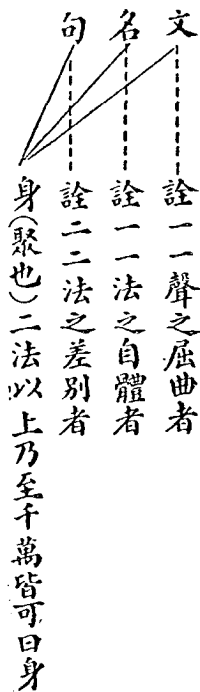 文 詮一一聲之屈曲者
名 詮一一法之自體者
句 詮二二法之差別者
身(聚也)二法以上乃至千萬皆可曰身